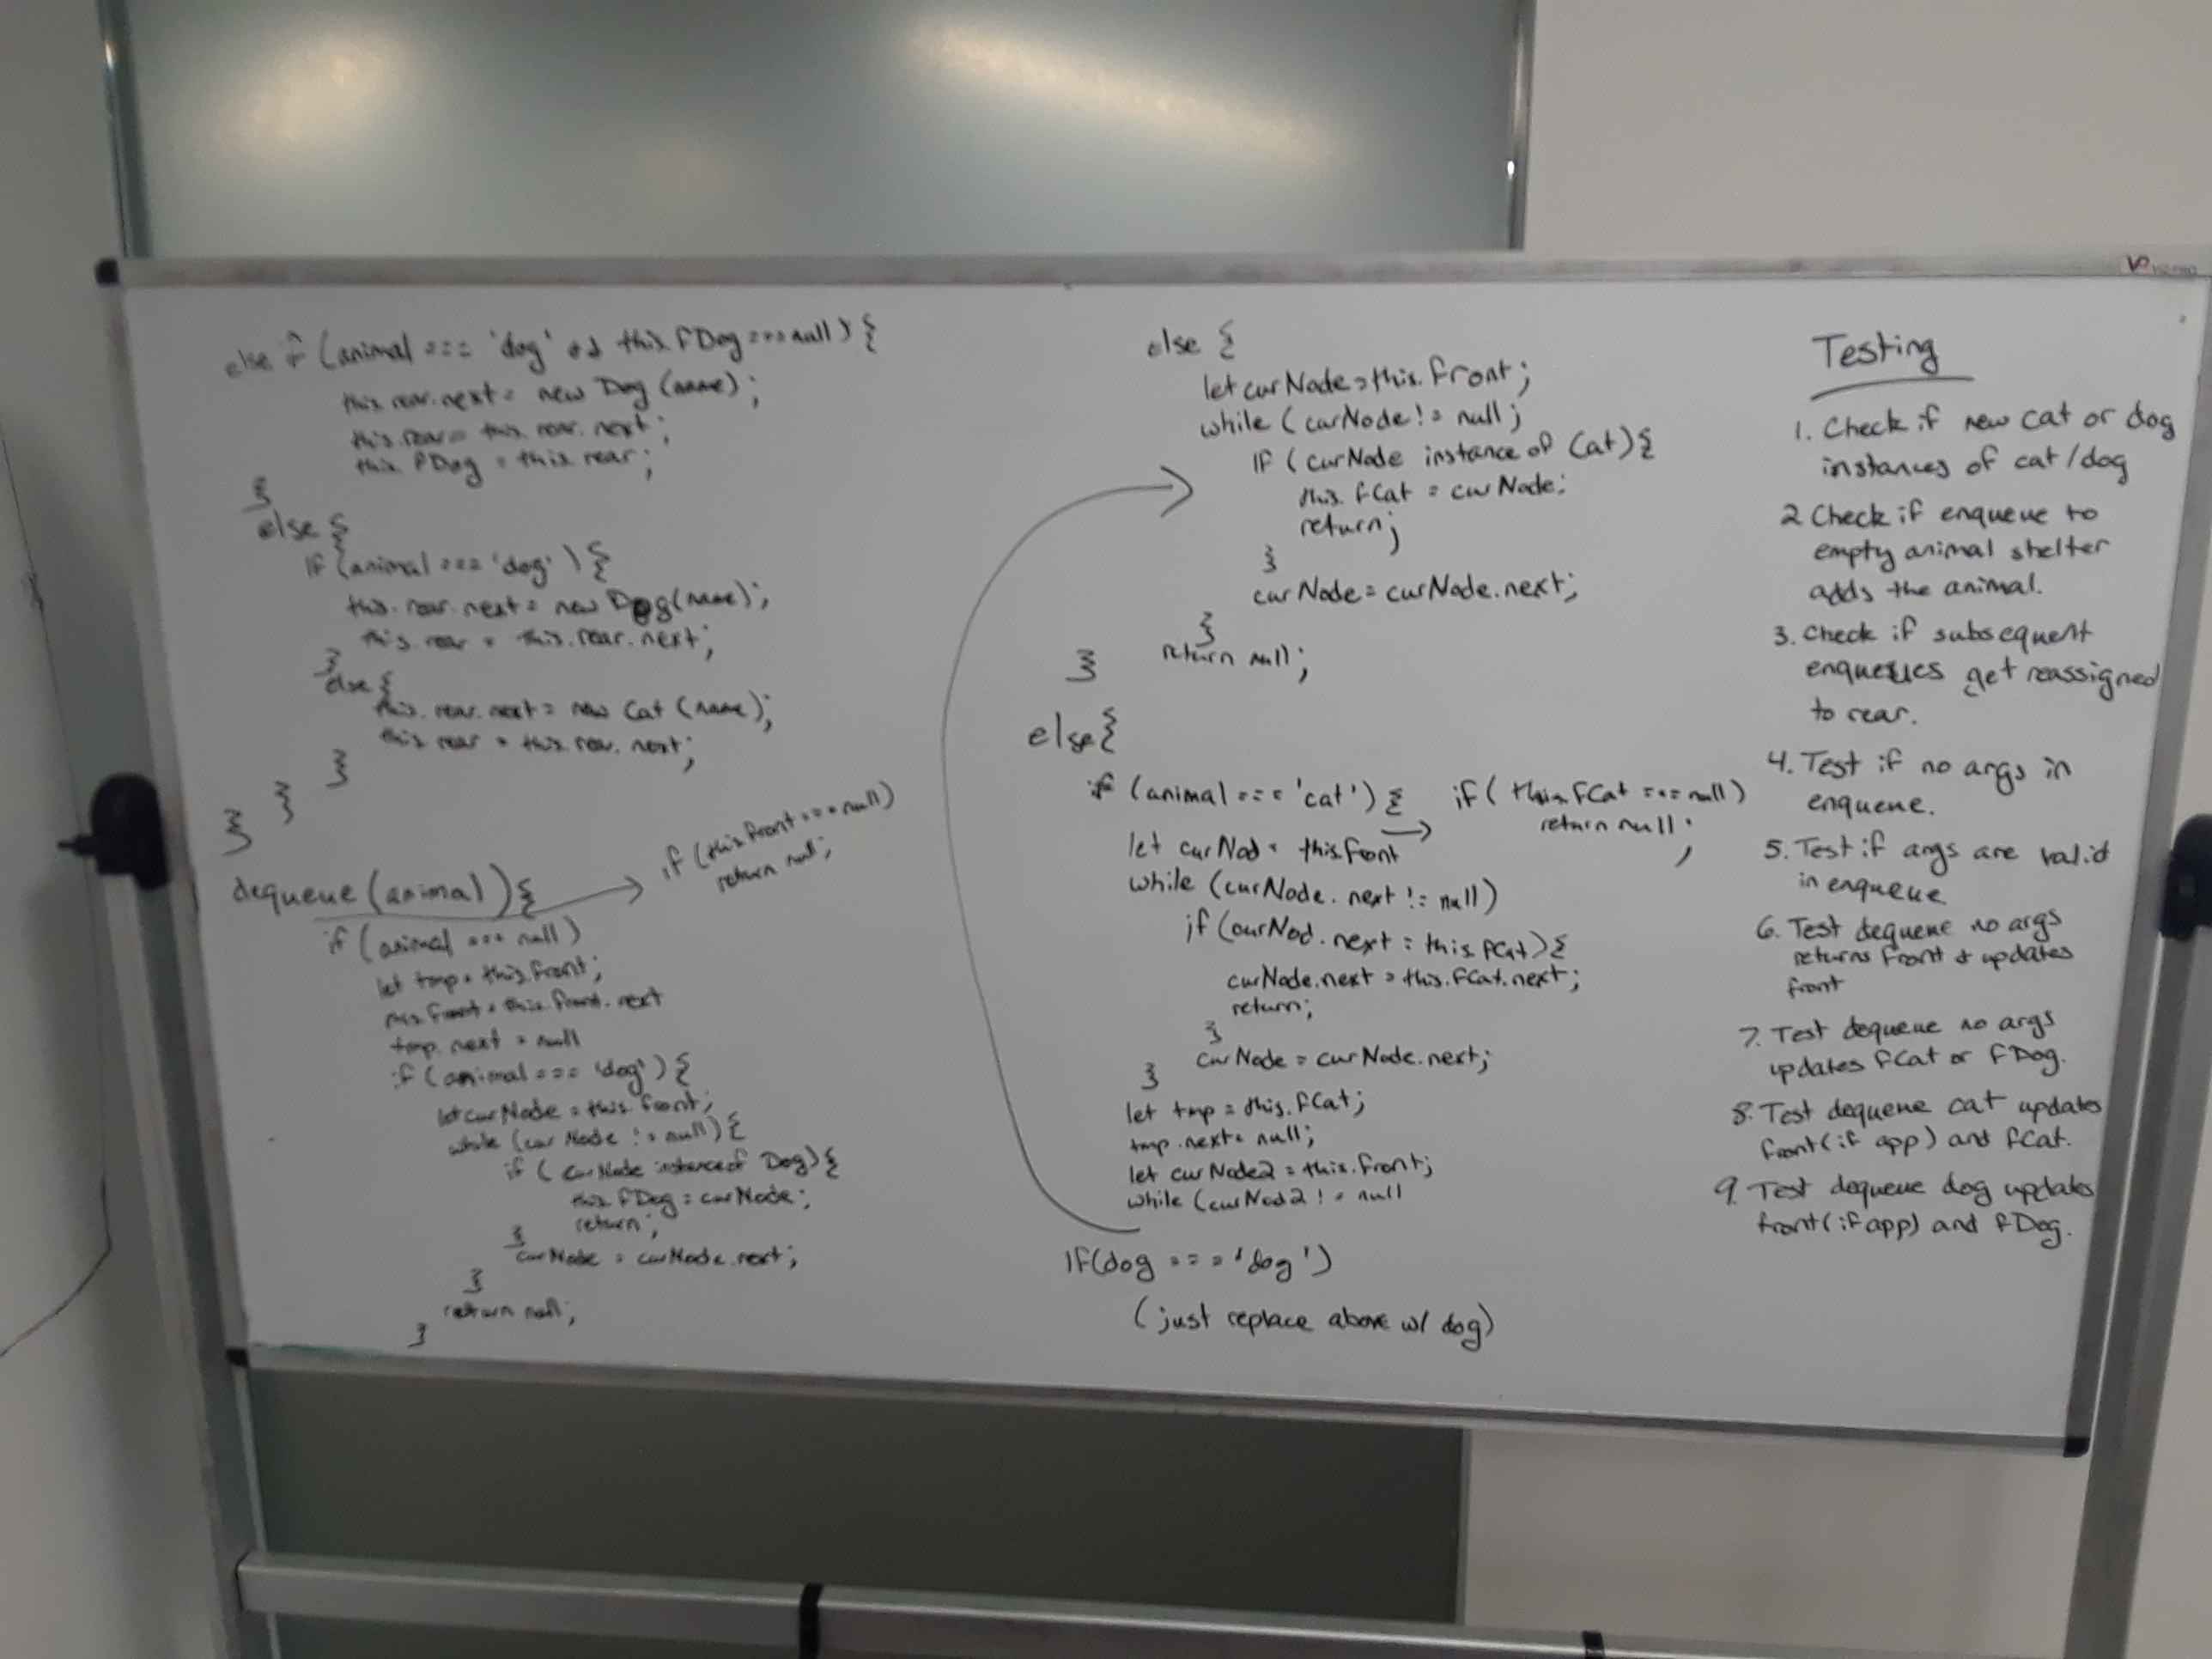 else if (animal === 'dog' && this.fDog === null) {
this.rear.next = new Dog (name);
this.rear = this.rear.next;
this.fDog = this.rear;
}
else {
if (animal === 'dog') {
this.rear.next = new Dog(name);
this.rear = this.rear.next;
}
else {
this.rear.next = new Cat (name);
this.rear = this.rear.next;
}
}
}
dequeue (animal) {
if (this.front === null)
return null;
if (animal === null)
let tmp = this.front;
this.front = this.front.next
tmp.next = null
if (animal === 'dog') {
let curNode = this.front;
while (curNode != null) {
if (curNode instanceof Dog) {
this.fDog = curNode;
return;
}
curNode = curNode.next;
}
return null;
}
else {
let curNode = this.front;
while (curNode != null;
IF (curNode instance of Cat) {
this.fCat = curNode;
return;
}
curNode = curNode.next;
}
return null;
}
else {
if (animal === 'cat') {
if (this.fCat === null)
return null;
let curNod = this.front
while (curNode.next != null)
if (curNod.next = this.fCat) {
curNode.next = this.fCat.next;
return;
}
curNode = curNode.next;
}
let tmp = this.fCat;
tmp.next = null;
let curNode2 = this.front;
while (curNod2 != null
If (dog === 'dog')
(just replace above w/ dog)
Testing
1. Check if new cat or dog
instances of cat/dog
2 Check if enqueue to
empty animal shelter
adds the animal.
3. Check if subsequent
enqueues get reassigned
to rear.
4. Test if no args in
enqueue.
5. Test if args are valid
in enqueue
6. Test dequeue no args
returns front & updates
front
7. Test dequeue no args
updates fCat or fDog.
8. Test dequeue cat updates
front (if app) and fCat.
9. Test dequeue dog updates
front (if app) and fDog.